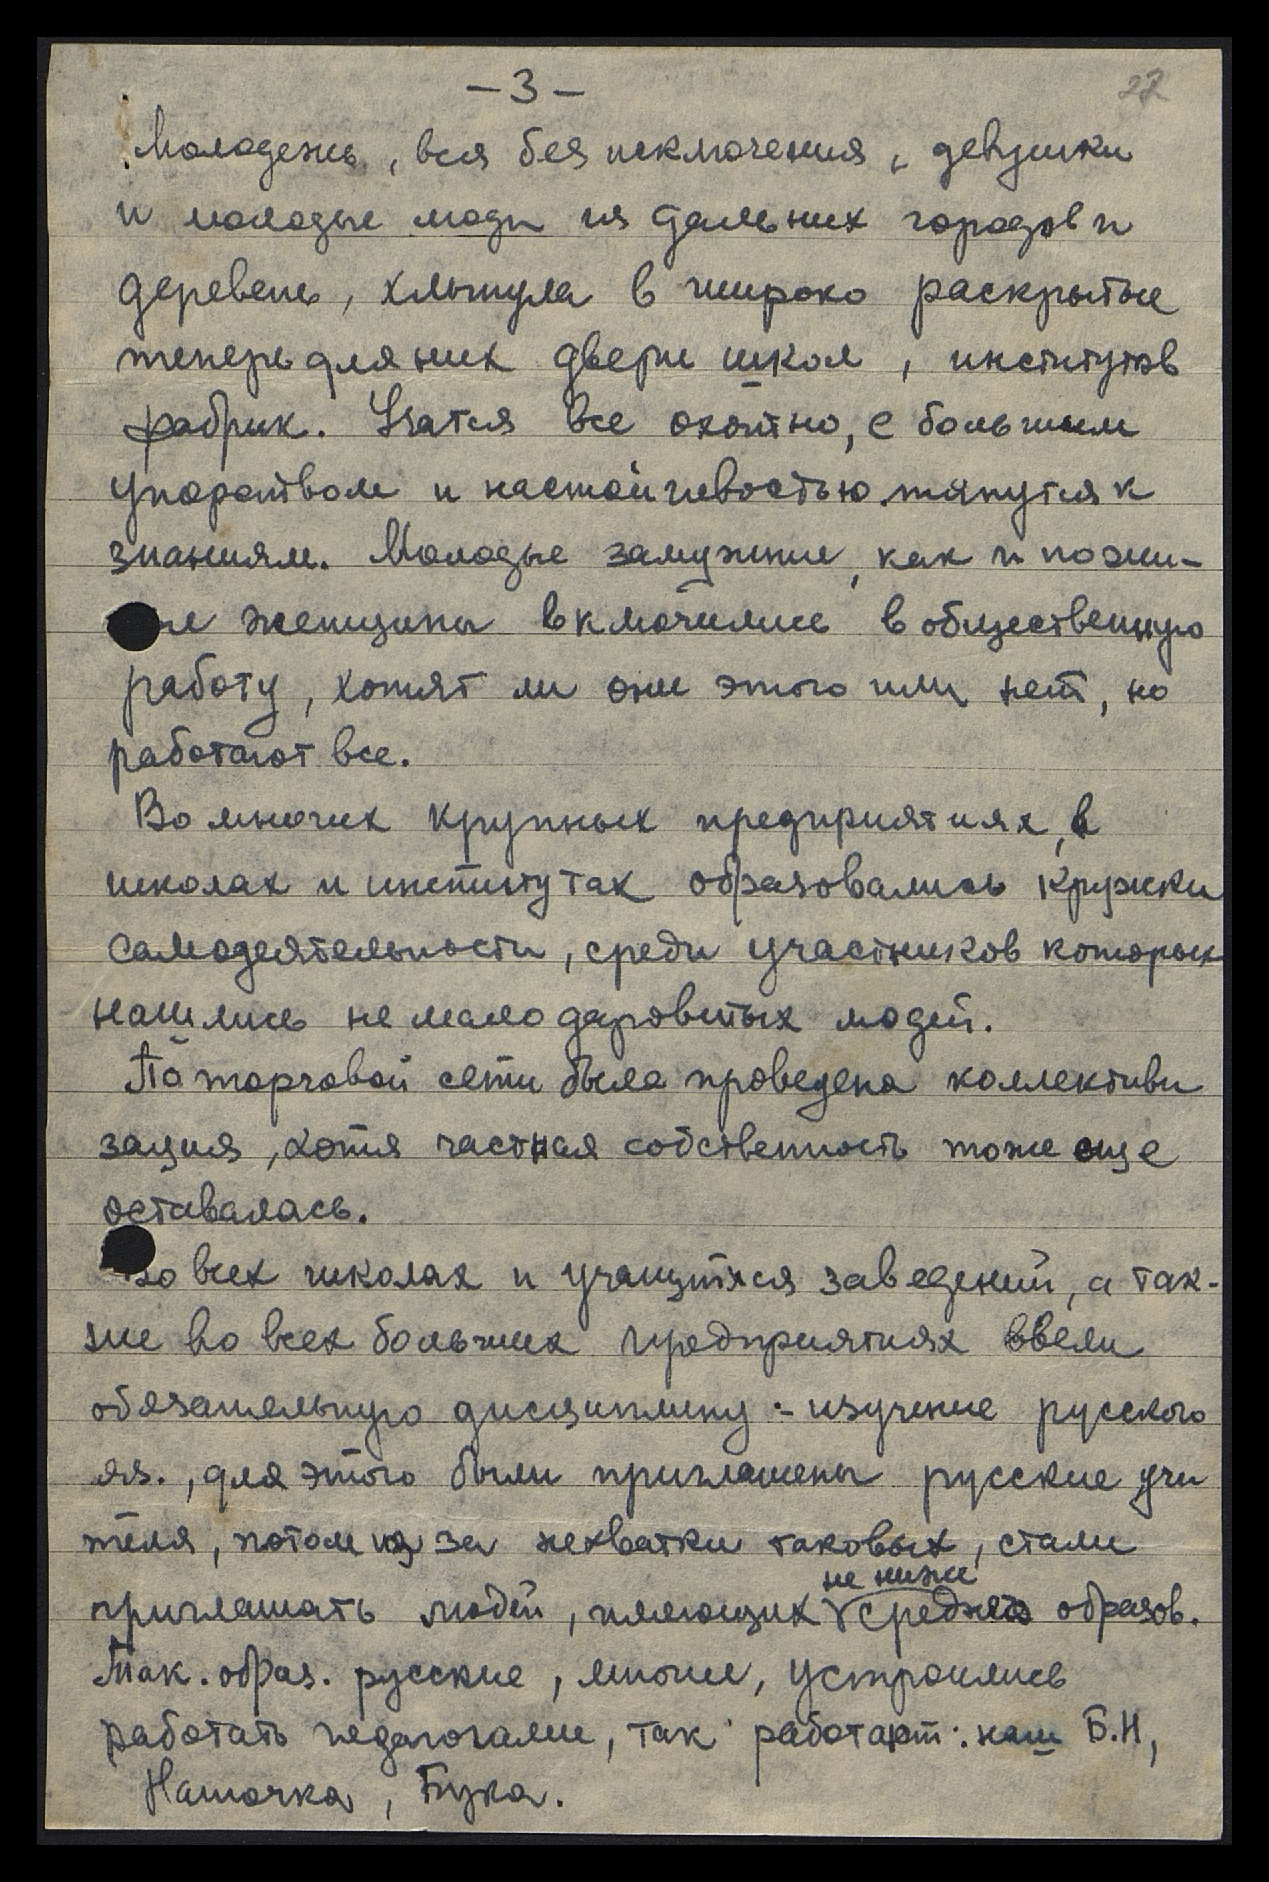 - 3 -
27
Молодежь, вся без исключения, девушки
и молодые люди из дальних городов и
деревень, хлынула в широко раскрытые
теперь для них двери школ, институтов
фабрик. Учатся все охотно, с большим
упорством и настойчивостью тянутся к
знаниям. Молодые замужние, как и пожи-
лые женщины включились в общественную
работу, хотят ли они этого или нет, но
работают все.
Во многих крупных предприятиях, в
школах и институтах образовались кружки
самодеятельности, среди участников которых
нашлись не мало даровитых людей.
По торговой сети была проведена коллективи
зация, хотя частная собственность тоже еще
оставалась.
Во всех школах и учащихся заведений, а так-
же во всех больших предприятиях ввели
обязательную дисциплину :- изучение русского
яз., для этого были приглашены русские учи
теля, потом из за нехватки таковых, стали
не ниже
приглашать людей, имеющих среднего образов.
Так. образ. русские, многие, устроились
работать педагогами, так работают: наш Б.Н,
Наточка, Бука.